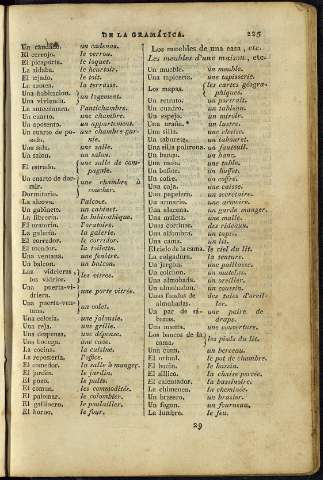 DE LA GRAMÁTICA. 225
Un candado. un cadenas.
El cerrojo. le verrou.
El picaporte. le loquet.
La aldaba. le heurtoir.
El tejado. le toit.
La azotea. la terrasse.
Una habitacion.
Una vivienda. un logement.
La antecámara. l'antichambre.
Un cuarto. une chambre.
Un aposento. un appartement.
Un cuarto de posada. une chambre garnie.
Una sala. une salle.
Un salon. un salon.
El estrado. une salle de compagnie.
Un cuarto de dormir. une chambre à coucher.
Dormitorio.
La alcova. l'alcove.
Un gabinete. un cabinet.
La librería. la bibliothèque.
El oratorio. l'oratoire.
La galería. la galerie.
El corredor. le corridor.
El tocador. la toilette.
Una ventana. une fenêtre.
Un balcon. un balcon.
Las vidrieras, los vidrios. les vitres.
Una puerta-vidriera. une porte vitrée.
Una puerta-ventana. un volet.
Una celosía. une jalousie.
Una reja. une grille.
Una despensa. une dépense.
Una bodega. une cave.
La cocina. la cuisine.
La repostería. l'office.
El comedor. la salle à manger.
El jardin. le jardin.
El pozo. le puits.
El comun. les commodités.
El palomar. le colombier.
El gallinero. le poulailler.
El horno. le four.
Los muebles de una casa, etc.
Les meubles d'une maison, etc.
Un mueble. un meuble.
Una tapicería. une tapisserie.
Los mapas. les cartes géographiques.
Un retrato. un portrait.
Un cuadro. un tableau.
Un espejo. un miroir.
Una araña. un lustre.
Una silla. une chaise.
Un taburete. un tabouret.
Una silla poltrona. un fauteuil.
Un banco. un banc.
Una mesa. une table.
Un bufete. un buffet.
Un cofre. un coffre.
Una caja. une caisse.
Un escritorio. un secrétaire.
Un armario. une armoire.
Una alacena. un garde manger.
Una maleta. une malle.
Unas cortinas. des rideaux.
Una alfombra. un tapis.
Una cama. un lit.
El cielo de la cama. le ciel du lit.
La colgadura. la tenture.
Un jergon. une paillasse.
Un colchon. un matelas.
Una almohada. un oreiller.
Un almohadon. un coussin.
Unas fundas de almohadas. des taies d'oreiller.
Un par de sábanas. une paire de draps.
Una manta. une couverture.
Los bancos de la cama. les pieds du lit.
Una cuna. un berceau.
El orinal. le pot de chambre.
El bacin. le bassin.
El sillico. la chaise percée.
El calentador. la bassinoire.
La chimenea. la cheminée.
Un brasero. un brasier.
Un fogon. un fourneau.
La lumbre. le feu.
29